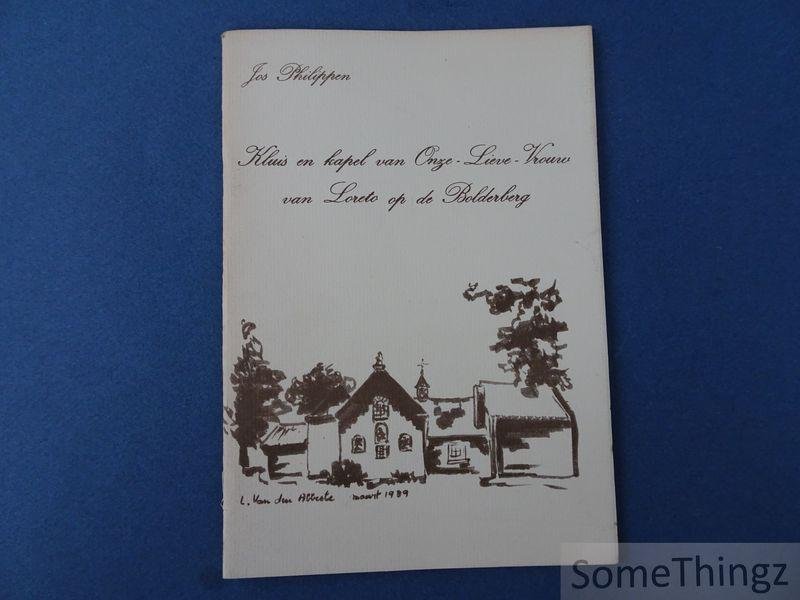 Jos Philippen
Kluis en kapel van Onze-Lieve-Vrouw
van Loreto op de Bolderberg
L. Van den Abbeele maart 1989
SomeThingz